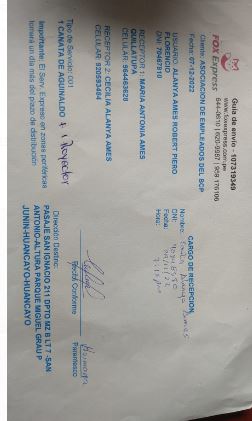 FOX Express
Guía de envío - 107319349
www.foxexpress.com.pe
644-8610 | 620-9967 | 958 176106
Cliente: ASOCIACION DE EMPLEADOS DEL BCP
Fecha: 07-12-2022
USUARIO: ALANYA AMES ROBERT PIERO
FLORENCIO
DNI: 70467110
RECEPTOR 1: MARIA ANTONIA AMES
QUILLATUPA
CELULAR: 964463628
RECEPTOR 2: CECILIA ALANYA AMES
CELULAR: 920593484
Tipo de Servicio: 001
1 CANATA DE AGUINALDO
Importante: El Serv. Express en zonas periféricas
tomará un día más del plazo de distribución
CARGO DE RECEPCION
Nombre:
DNI:
Fecha:
Hora:
Recibí Conforme
Parentesco
Dirección Destino:
PASAJE SAN IGNACIO 211 DPTO MZ B LT 7 -SAN
ANTONIO-ALTURA PARQUE MIGUEL GRAU P
JUNIN-HUANCAYO-HUANCAYO